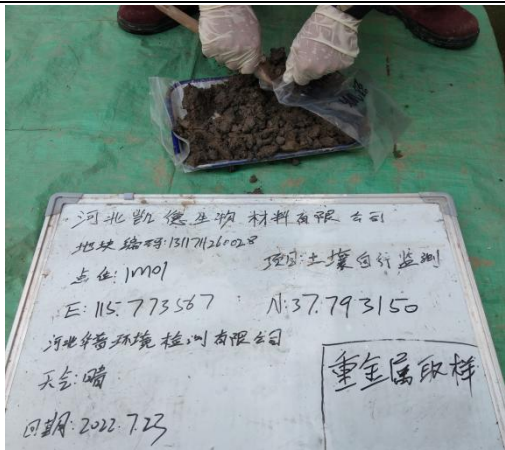 河北凯德生物材料有限公司
地块编码:1311711260028
点位:1M01 项目:土壤自行监测
E:115.773567 N:37.793150
河北华普环境检测有限公司
天气:晴
重金属取样
日期:2022.7.23